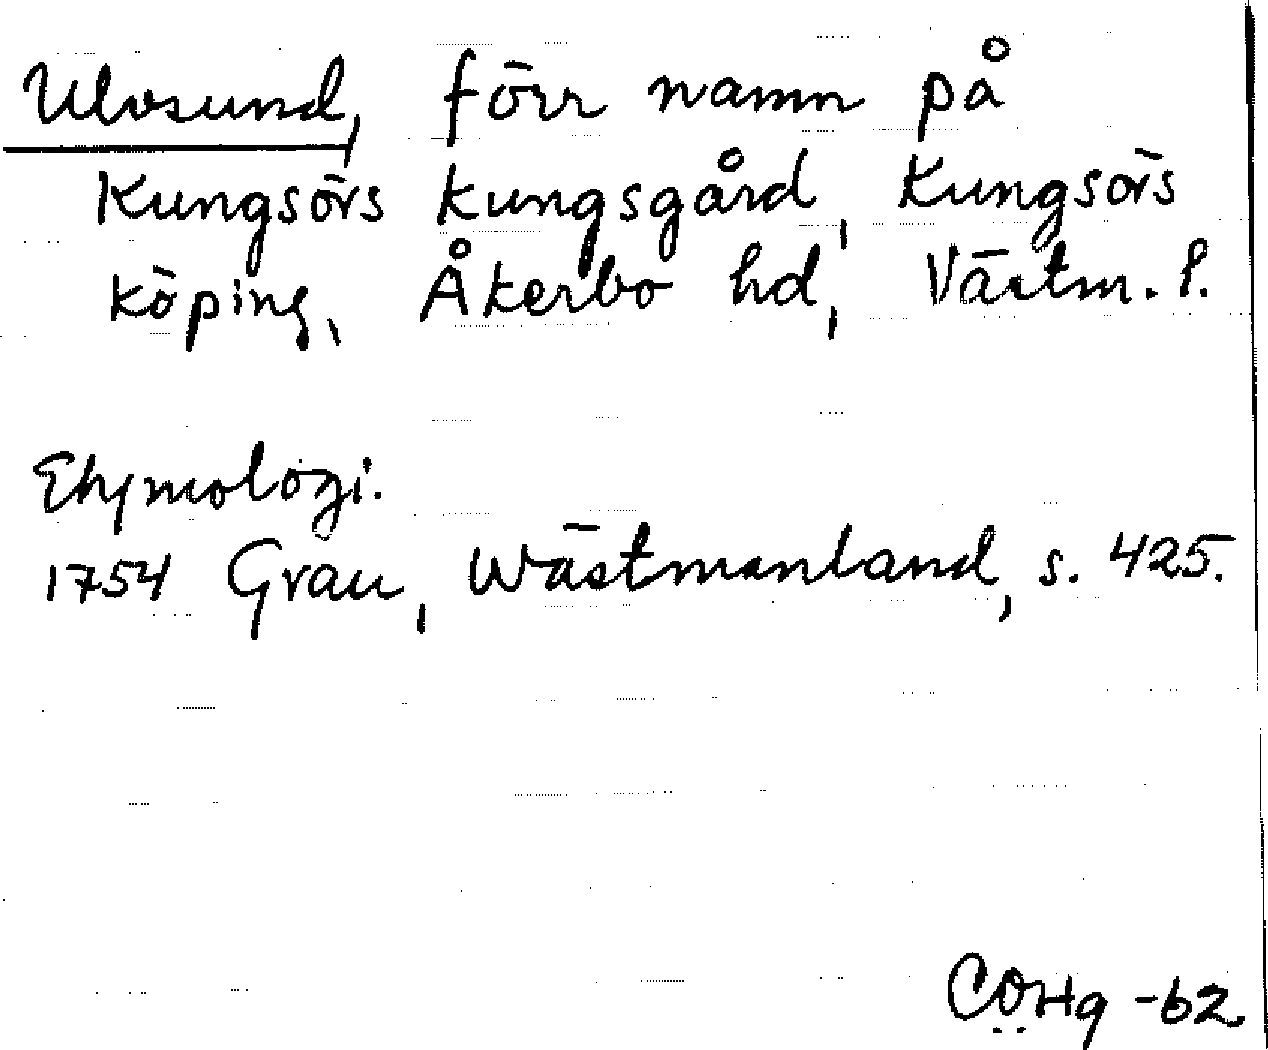 Ulvsund, förr namn på
Kungsörs kungsgård, Kungsörs
köping, Åkerbo hd, Västm. l.
Etymologi.
1754 Grau, Wästmanland, s. 425.
CÖHg -62